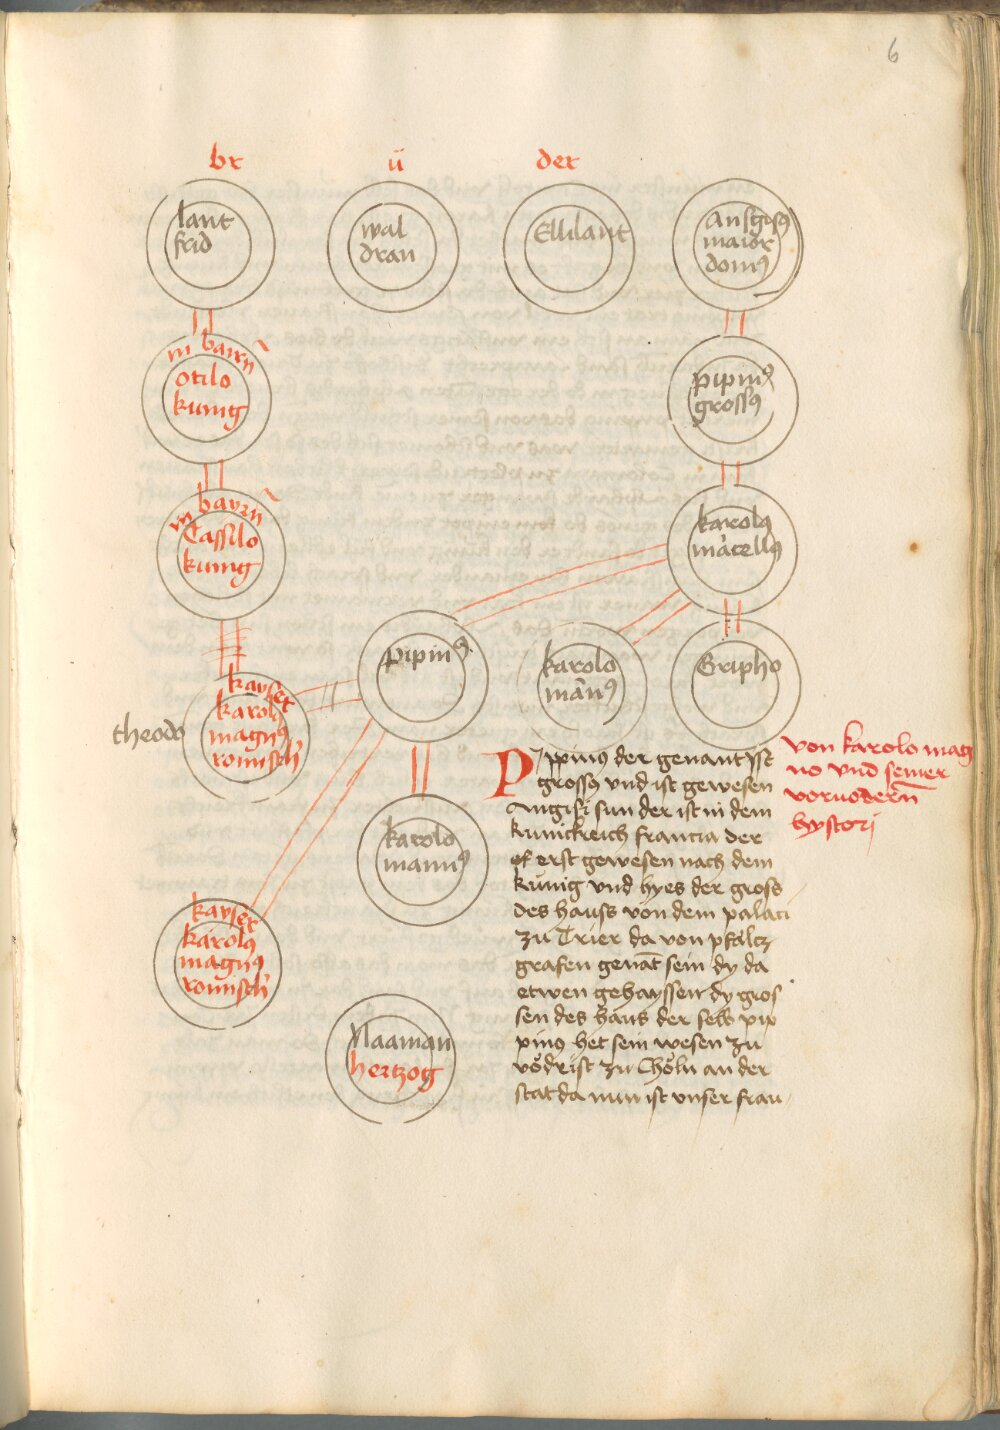 6
br ü der
lant
frid
wal
dran
Ellilant
Ansgisꝰ
maior
domꝰ
in bairn̄
otilo
kunig
pipinꝰ
grossꝰ
in bayrn̄
Tassilo
kunig
karolꝰ
marcellꝰ
pipinꝰ
karolo
mānꝰ
Gripho
theodo
kayser
karolꝰ
magnꝰ
romisch
karolo
mannꝰ
kayser
karolꝰ
magnꝰ
romisch
Naaman
hertzog
von karolo mag
no vnd seiner
voruodern̄
hystori
Pippinus der genant yst
grossꝰ vnd ist gewesen
Angisi sun der ist in dem
kunickreich francia der
erst gewesen nach dem
künig vnd hyes der gross
des hauss von dem palaci
zu Trier da von pfaltz
grafen genāt sein dy da
etwen gehayssen dy gros
sen des haus der selb pip
pinꝰ het sein wesen zu
vödrist zu Chöln an der
stat da nun ist vnser frau